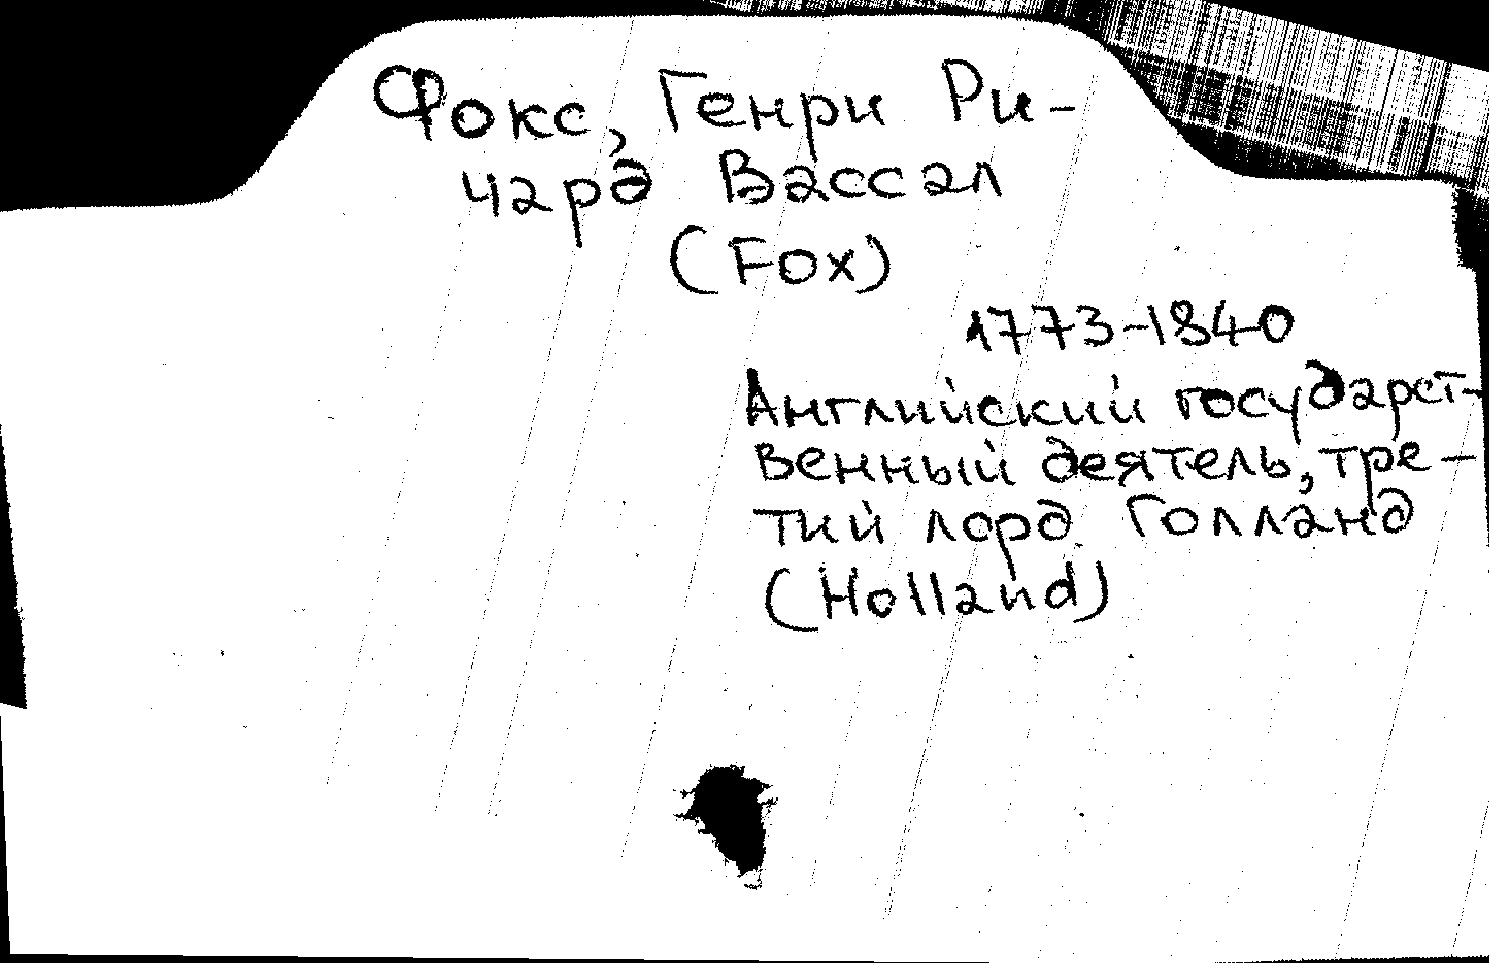 Фокс, Генри Ри-
чард Вассал
(Fox)
1773-1840
Английский государст-
венный деятель, тре-
тий лорд Голланд
(Holland)